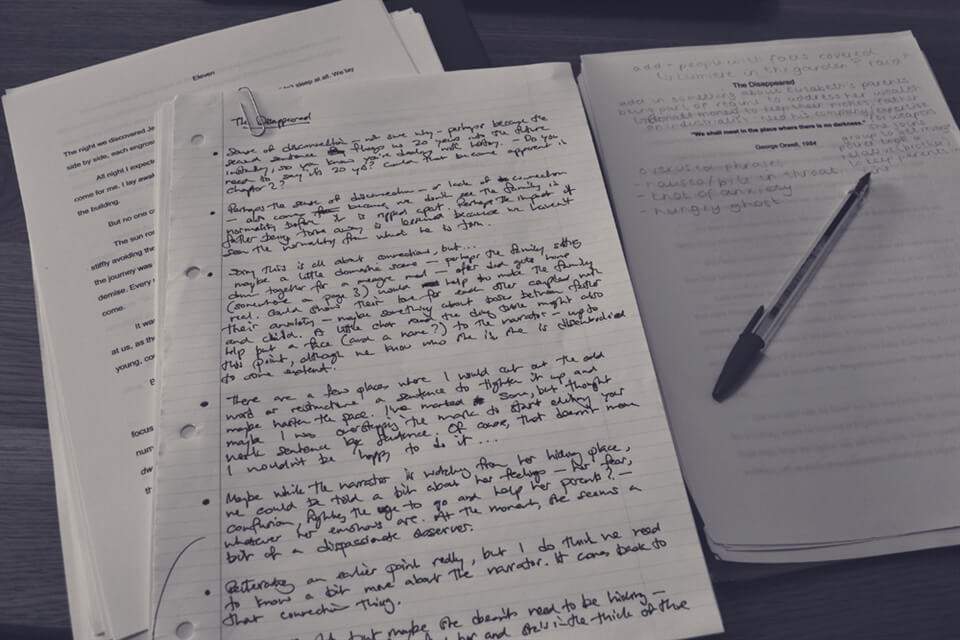 Eleven
't sleep at all. We lay
The night we discovered Je
side by side, each engros
All night I expec
come for me. I lay awa
the building.
But no one c
The sun ro
stiffly avoiding th
the journey was
demise. Every s
come.
It wa
at us, as th
young, co
B
focus
num
dw
th
The Disappeared
• Sense of disconnection – not sure why – perhaps because the
second sentence flings us 20 years into the future
instantly, so you know you're dealing with history. – Do you
need to say it's 20 yrs? Could that become apparent in
chapter 2?
• Perhaps the sense of disconnection – or lack of connection
– also comes because we don't see the family in
normality before it is ripped apart. Perhaps the impact of
father being torn away is lessened because we haven't
seen the normality from what he is torn.
• Sorry this is all about connections, but...
– maybe a little domestic scene – perhaps the family sitting
down together for a meagre meal – after dad gets home
(somewhere on page 3) would help to make the family
real. Could show their love for each other coupled with
their anxiety – maybe something about between father
and child. A little chat round the dining table might also
help put a face (and a name?) to the narrator – up to
this point, although we know who she is, she is disembodied
to some extent.
• There are a few places where I would cut out the odd
word or restructure a sentence to tighten it up and
maybe hasten the pace. I've marked some, but thought
maybe I was overstepping the mark to start editing your
work sentence by sentence. Of course, that doesn't mean
I wouldn't be happy to do it ...
• Maybe while the narrator is watching from her hiding place,
we could be told a bit about her feelings – her fear,
confusion, fighting the urge to go and help her parents? –
whatever her emotions are. At the moment, she seems a
bit of a dispassionate observer.
• Reiterating an earlier point really, but I do think we need
to know a bit more about the narrator. It comes back to
that connection thing.
but maybe she doesn't need to be hiding –
her and she's in the thick of the
add – people with faces covered
in the garden – raid
The Disappeared
add in something about Elisabeth's parents
being part of regime to address her wealth
"We shall meet in the place where there is no darkness."
George Orwell, 1984
overused phrases
- nausea/bile in throat
- knot of anxiety
- hungry ghost